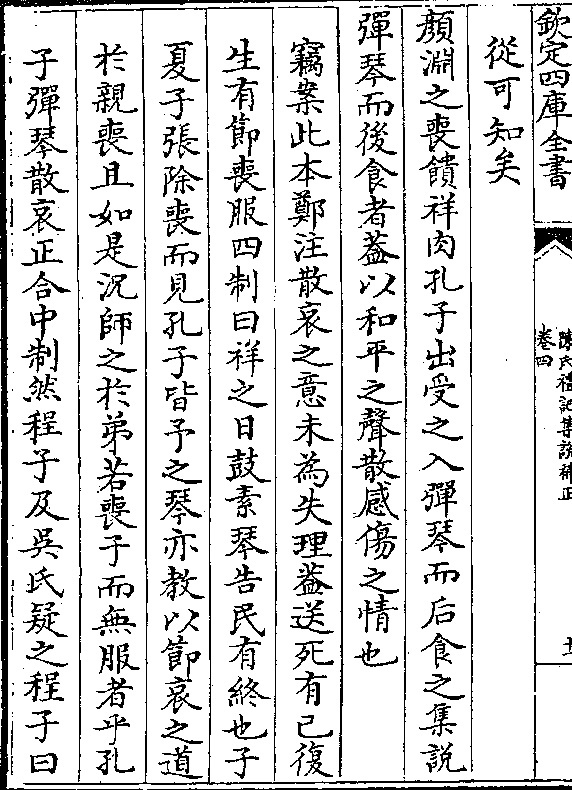 欽定四庫全書
陳氏禮記集說補正
卷四
從可知矣
顏淵之喪饋祥肉孔子出受之入彈琴而后食之集說
彈琴而後食者葢以和平之聲散感傷之情也
竊案此本鄭注散哀之意未為失理葢送死有已復
生有節喪服四制曰祥之日鼓素琴告民有終也子
夏子張除喪而見孔子皆予之琴亦教以節哀之道
於親喪且如是況師之於弟若喪子而無服者乎孔
子彈琴散哀正合中制然程子及吳氏疑之程子曰